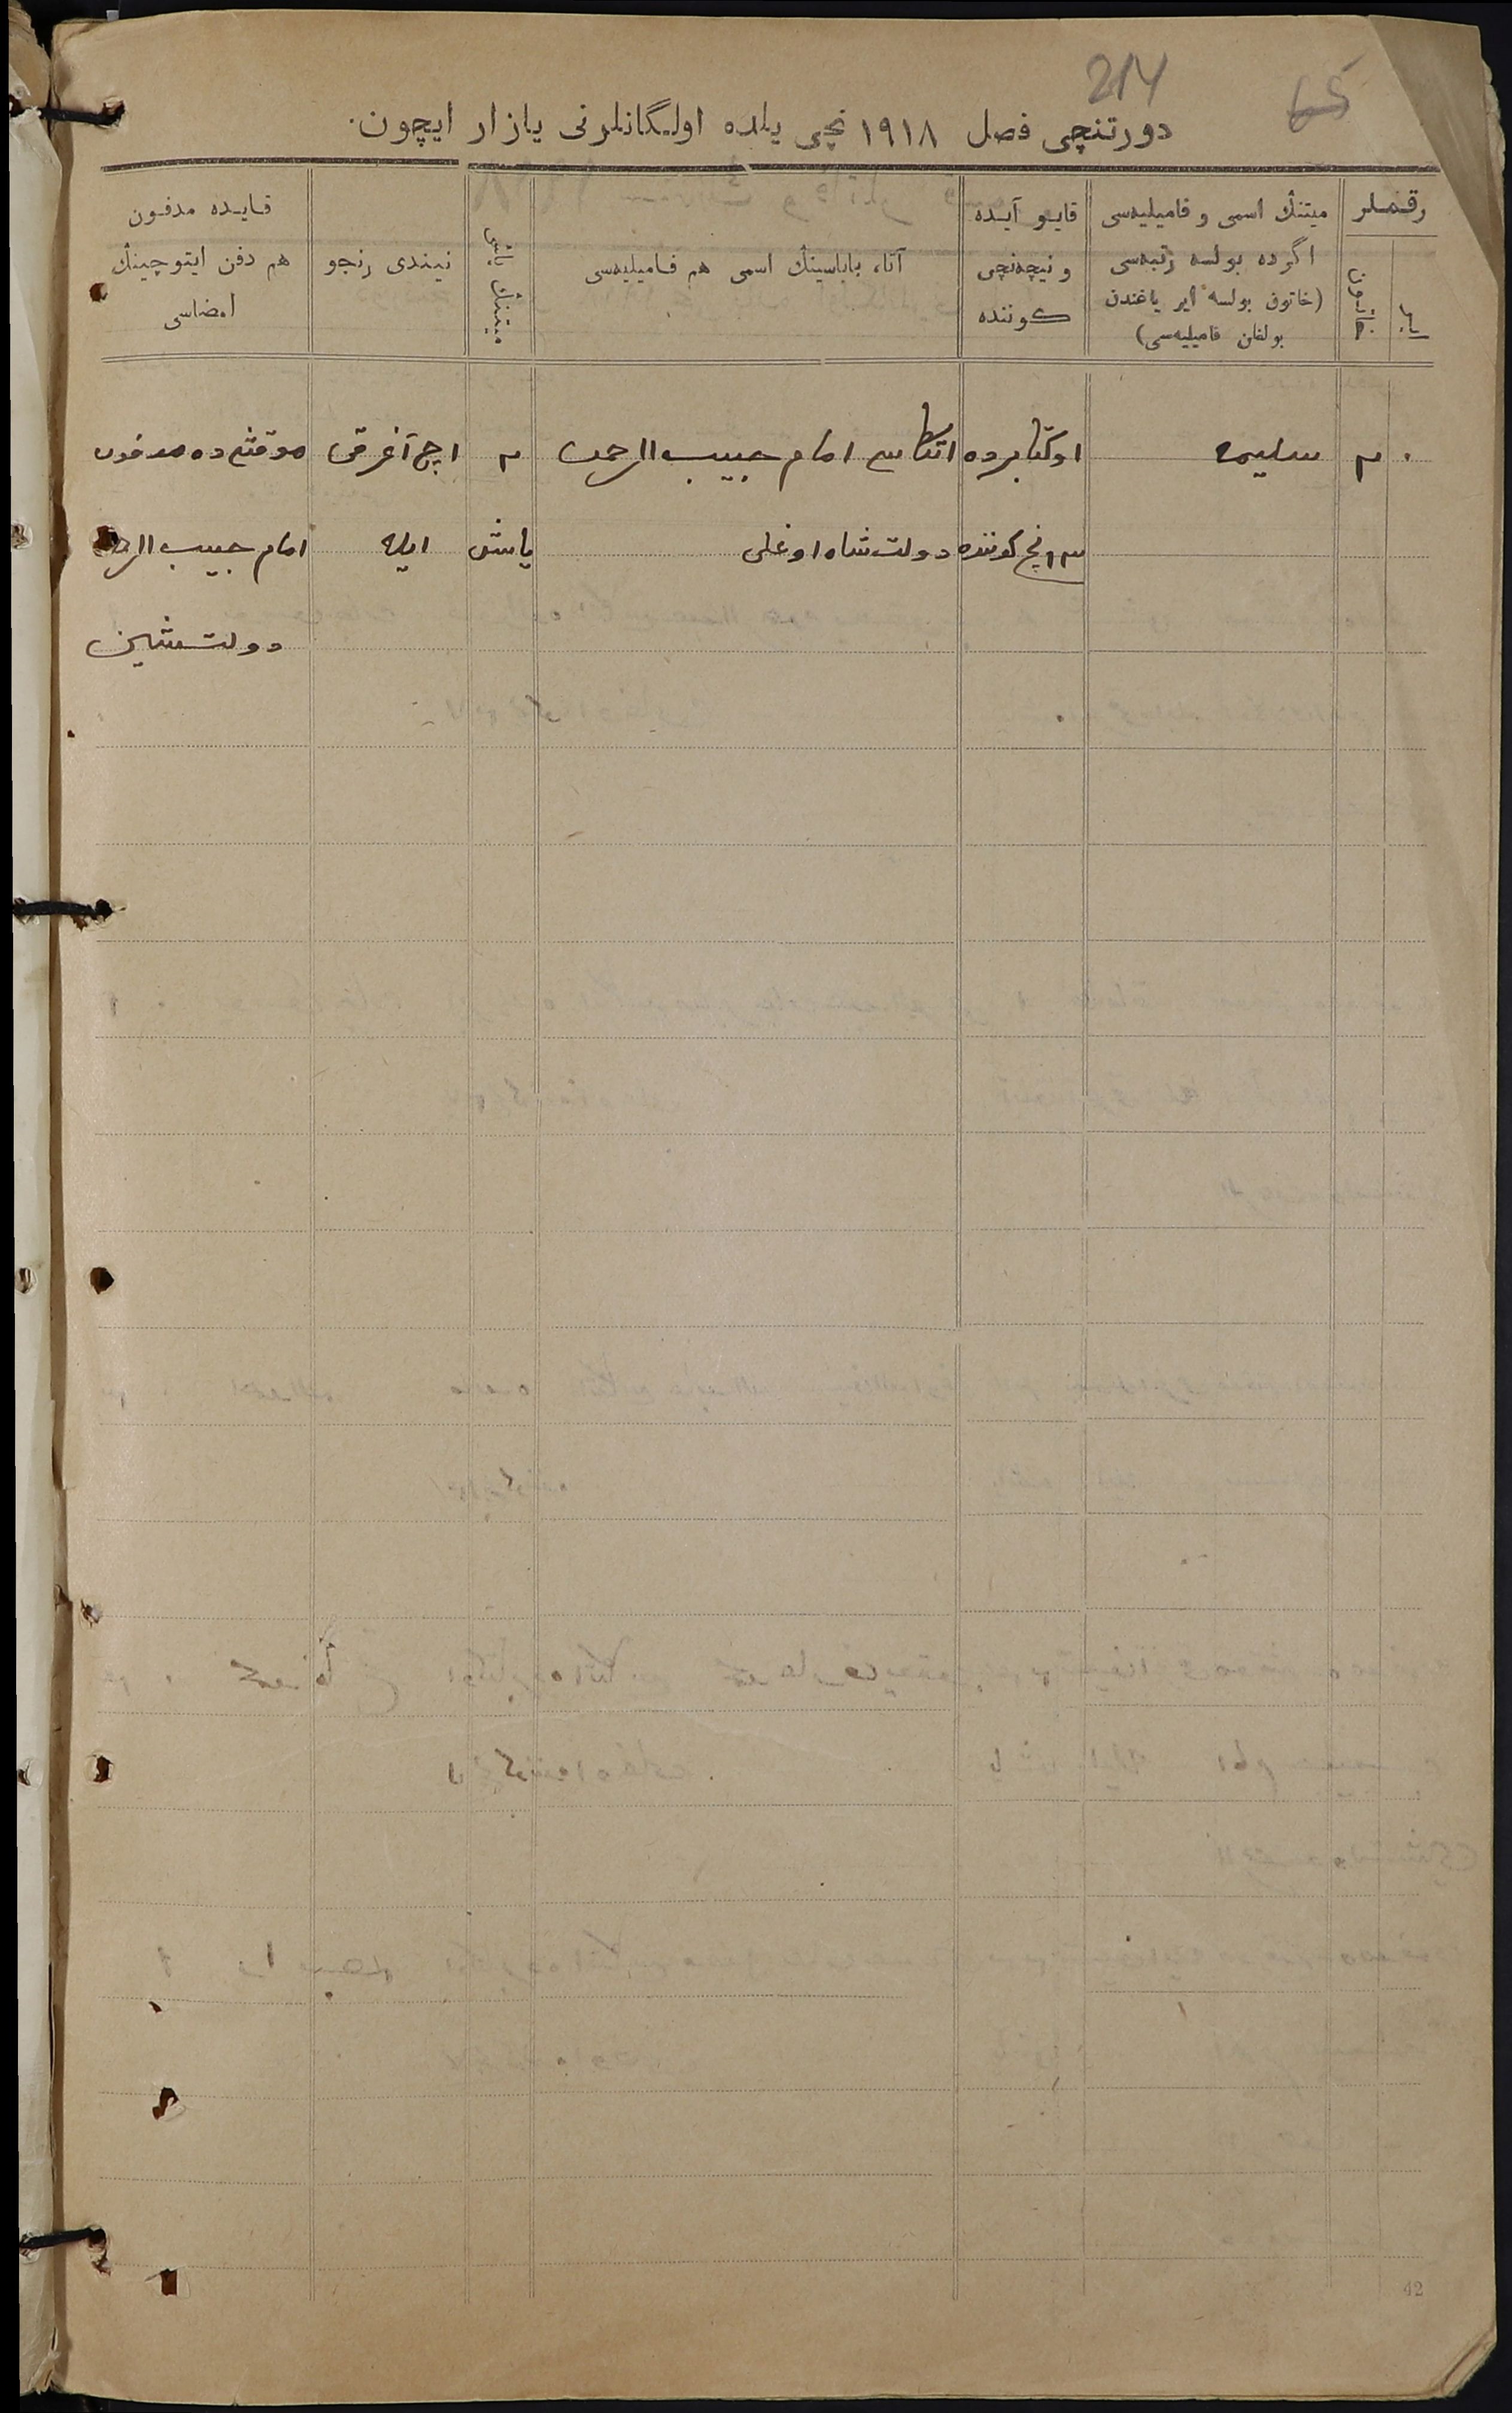 214
65
دورتنچی فصل ۱۹۱۸ نچی یلده اولگانلرنی یازار ایچون.
رقملر
میتنڭ اسمی و فامیلیه‌سی
اگرده بولسه رتبه‌سی
(خاتون بولسه ایر یاغندن
بولغان فامیلیه‌سی)
قایو آیده
و نیچه‌نچی
كوننده
آتا، باباسینڭ اسمی هم فامیلیه‌سی
میتنڭ یاشی
نیندی رنجو
قایده مدفون
هم دفن ایتوچینڭ
امضاسی
۰ ۲ سلیمه اوکتابرده اتکاسی امام حبیب الرحمن ۲ اچ آغرقی موقشی ده مدفون
نچی کوننده دولتشاه اوغلی یاشی ایله امام حبیب الرحمن
دولتشین
42